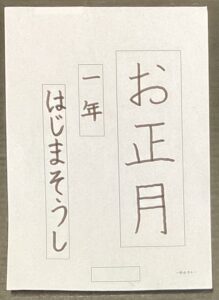 お正月
一年
はじまそうし